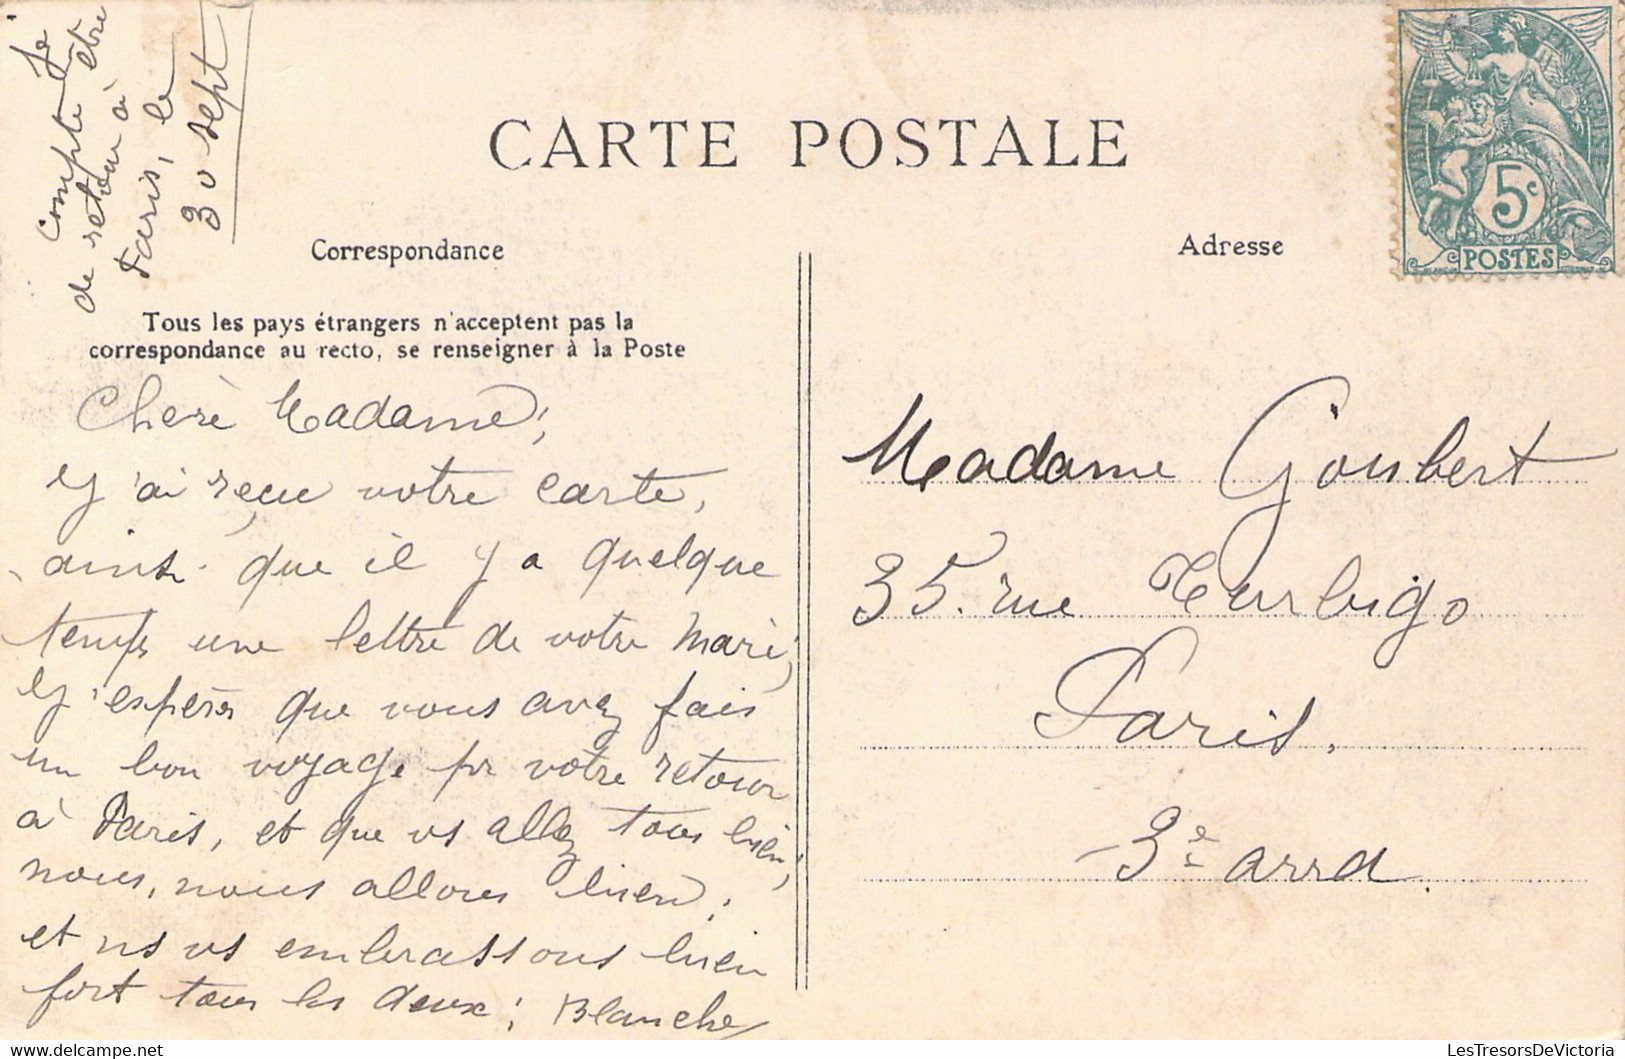 Je
compte
de retour à être
Paris, le
30 sept
CARTE POSTALE
Correspondance
Adresse
Tous les pays étrangers n'acceptent pas la
correspondance au recto, se renseigner à la Poste
5c
POSTES
Chère Madame,
J'ai reçue votre carte,
ainsi que il y a quelque
temps une lettre de votre mari,
J'espère que vous avez fais
un bon voyage pr votre retour
à Paris, et que vs allez tous bien,
nous, nous allons bien,
et ns vs embrassons bien
fort tous les deux; Blanche
Madame Goubert
35. rue Turbigo
Paris.
3e arrd.
LesTresorsDeVictoria